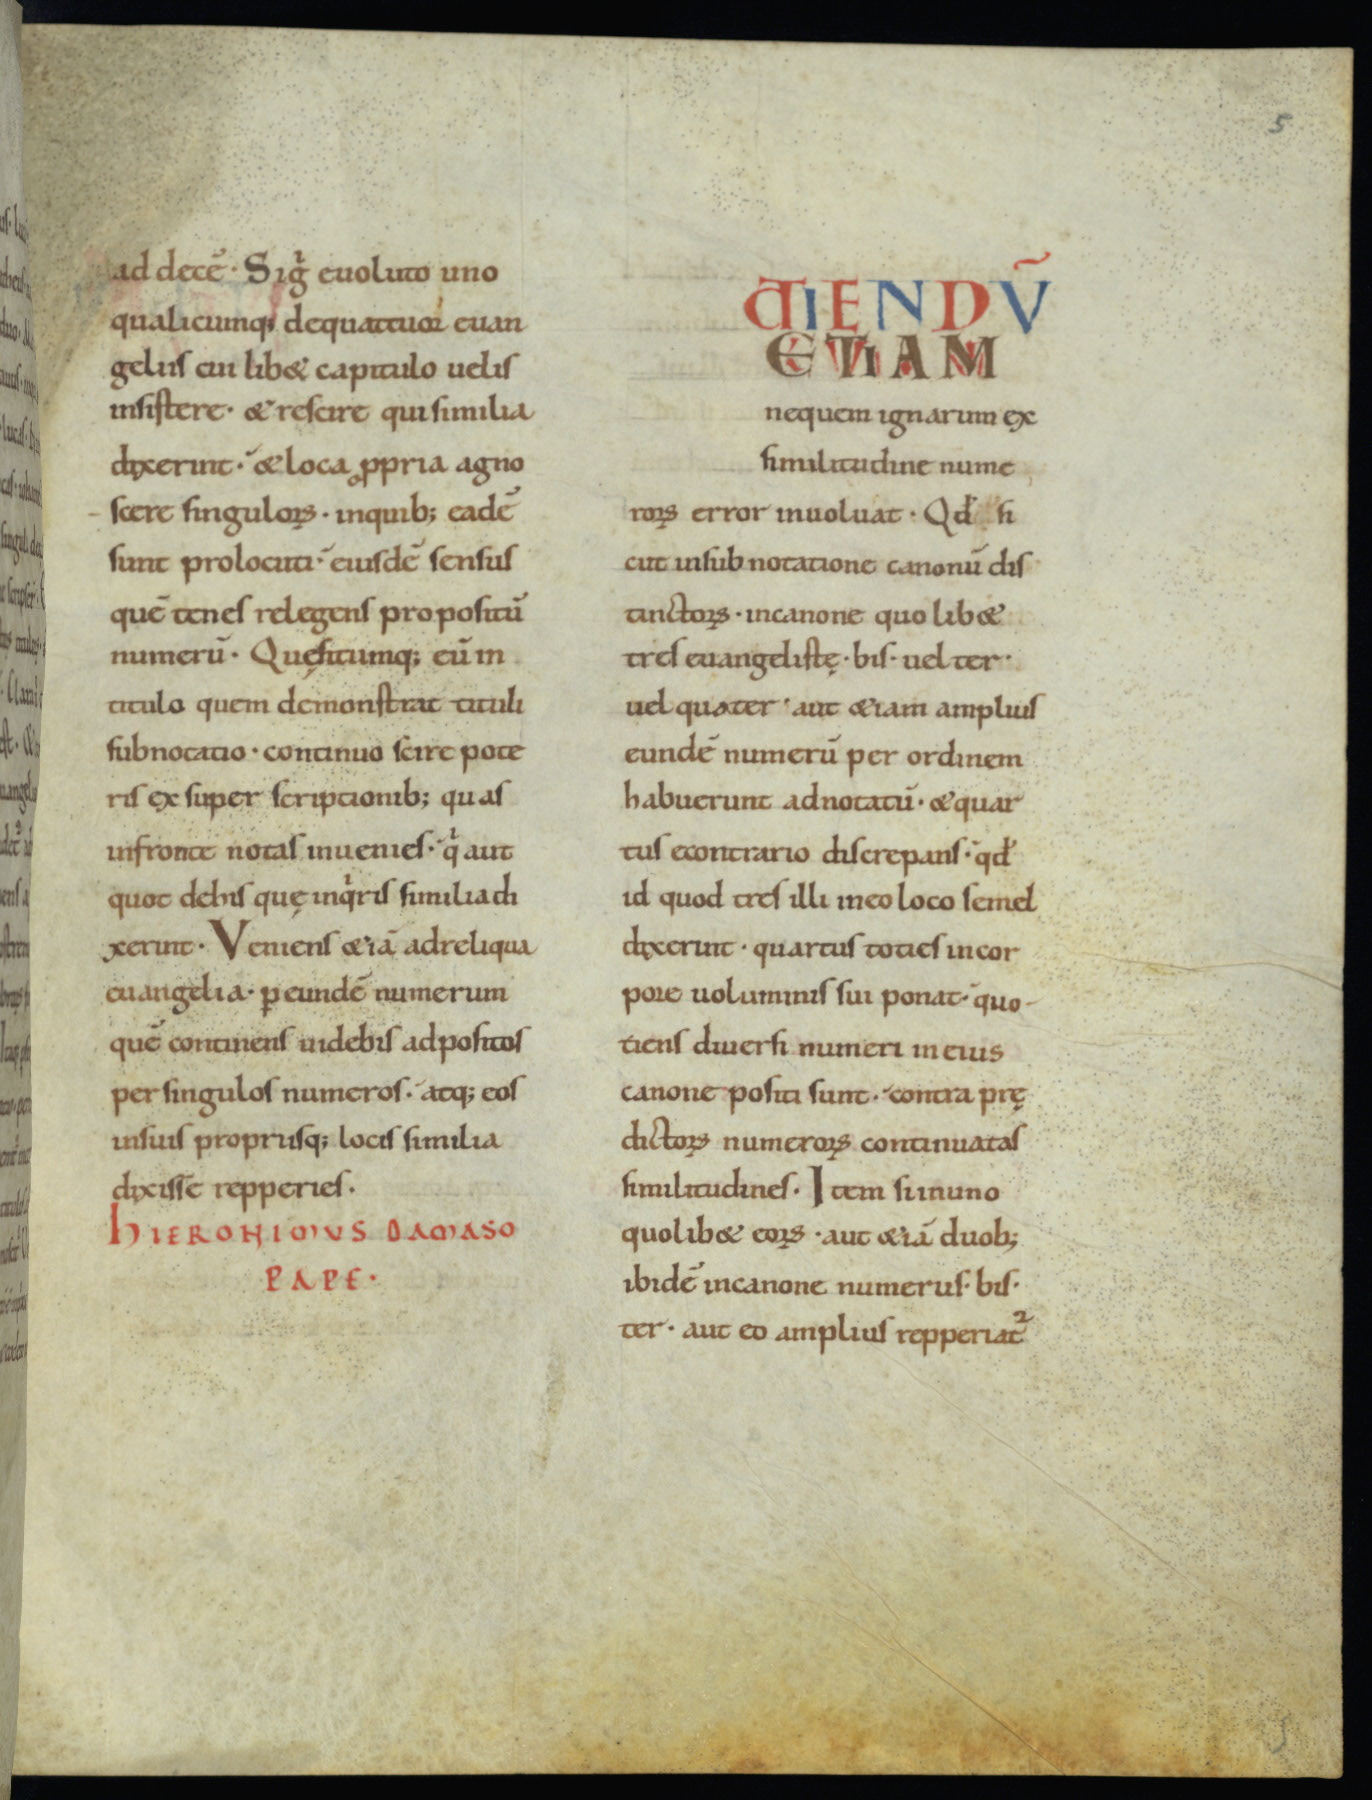 5
ad decē · Sigͥ euoluto uno
qualicumq; dequattuor euan
geliis cui lib& capitulo uelis
insistere · & rescire qui similia
dixerint · & loca ꝓpria agno
scere singuloꝝ · inquib; eadē
sunt prolocuti · eiusdē sensus
quē tenes relegens propositū
numerū · Quęsitumq; eū in
titulo quem demonstrat tituli
subnotatio · continuo scire pote
ris ex super scriptionib; quas
infronte notas inuenies · qͥ aut
quot dehis quę inqͥris similia di
xerint · Veniens &iā adreliqua
euangelia · ꝑ eundē numerum
quē continens uidebis adpositos
per singulos numeros · atq; eos
insuis propriisq; locis similia
dixisse repperies ·
hIERONIMVS DAMASO
PAPE ·
ATIENDV̄
ETIAM
nequem ignarum ex
similitudine nume
roꝝ error inuoluat · Qđ si
cut insubnotatione canonū dis
tinctoꝝ · incanone quo lib&
tres euangelistę · bis · uel ter ·
uel quater · aut &iam amplius
eundē numerū per ordinem
habuerunt adnotatū · & quar
tus econtrario discrepans · qđ
id quod tres illi ineo loco semel
dixerint · quartus toties incor
pore uoluminis sui ponat · quo-
tiens diuersi numeri ineius
canone positi sunt · contra prę
dictoꝝ numeroꝝ continuatas
similitudines · Item siinuno
quolib& eoꝝ · aut &iā duob;
ibidē incanone numerus · bis ·
ter · aut eo amplius repperiat᷑